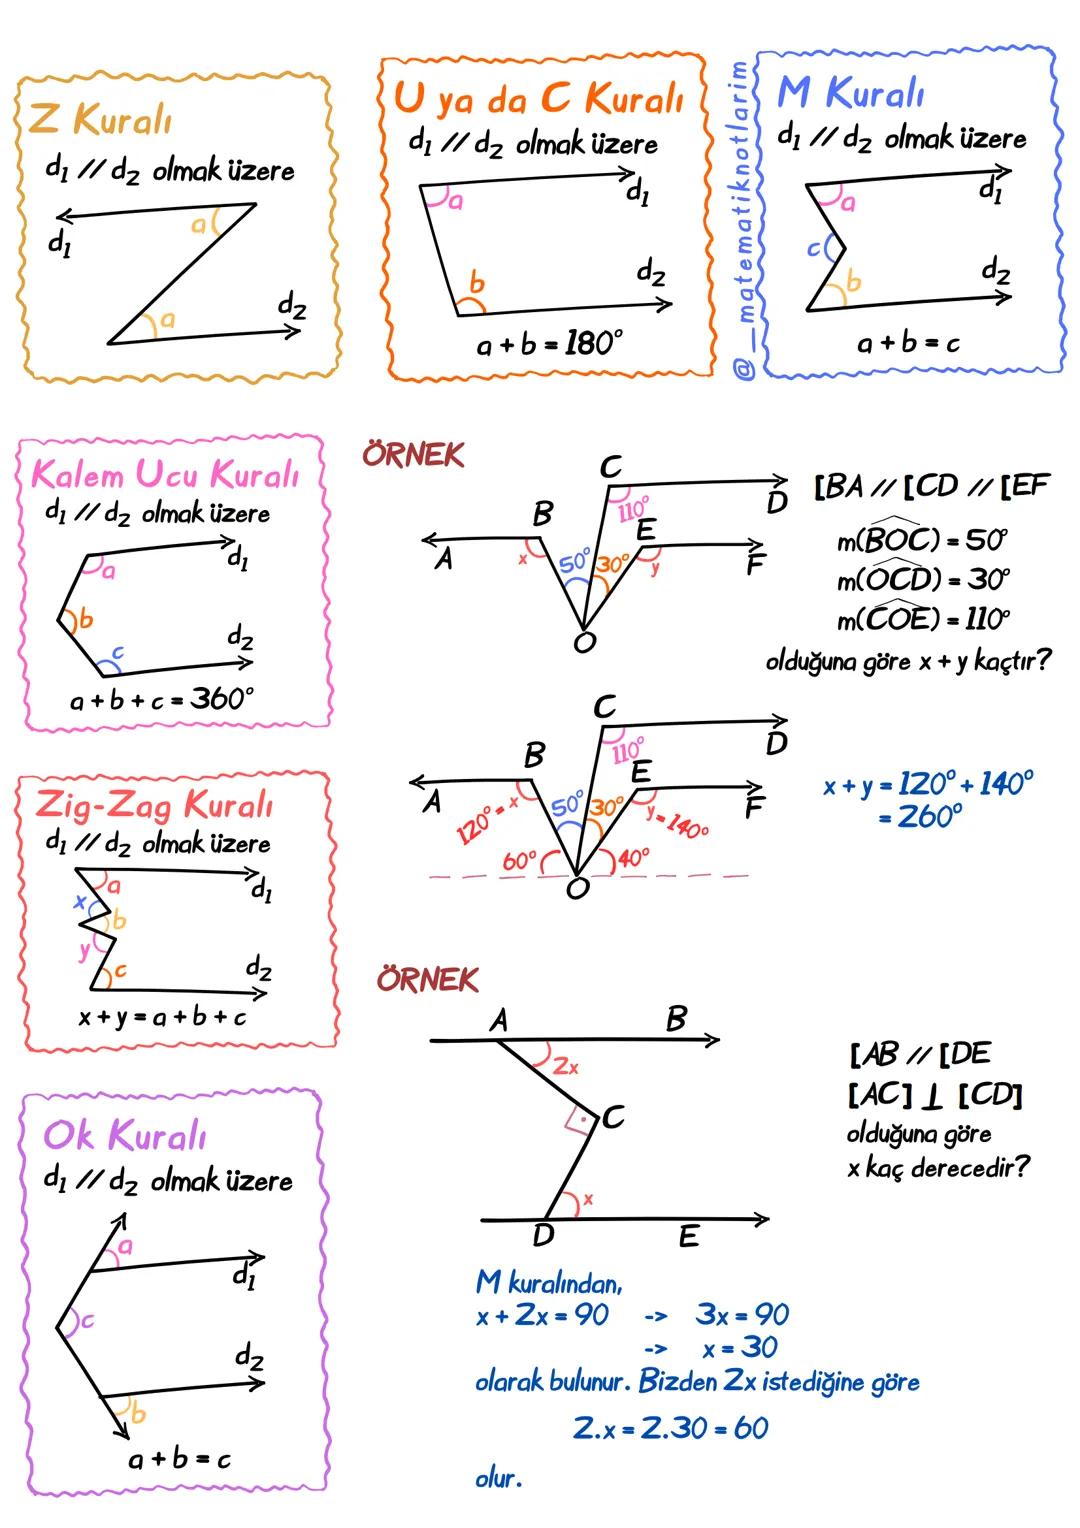 Z Kuralı
d1 // d2 olmak üzere
a
d1
a
d2
U ya da C Kuralı
d1 // d2 olmak üzere
a
d1
b
d2
a + b = 180°
@__matematiknotlarim
M Kuralı
d1 // d2 olmak üzere
a
d1
c
b
d2
a + b = c
Kalem Ucu Kuralı
d1 // d2 olmak üzere
a
d1
b
c
d2
a + b + c = 360°
ÖRNEK
C
110°
D
B
E
A
x
50°
30°
y
F
O
[BA // [CD // [EF
m(BOC) = 50°
m(OCD) = 30°
m(COE) = 110°
olduğuna göre x + y kaçtır?
C
110°
D
B
E
A
120° = x
50°
30°
y = 140°
F
60°
40°
O
x + y = 120° + 140°
= 260°
Zig-Zag Kuralı
d1 // d2 olmak üzere
a
d1
x
b
y
c
d2
x + y = a + b + c
ÖRNEK
A
B
2x
C
x
D
E
[AB // [DE
[AC] ⊥ [CD]
olduğuna göre
x kaç derecedir?
M kuralından,
x + 2x = 90 -> 3x = 90
-> x = 30
olarak bulunur. Bizden 2x istediğine göre
2.x = 2.30 = 60
olur.
Ok Kuralı
d1 // d2 olmak üzere
a
d1
c
d2
b
a + b = c